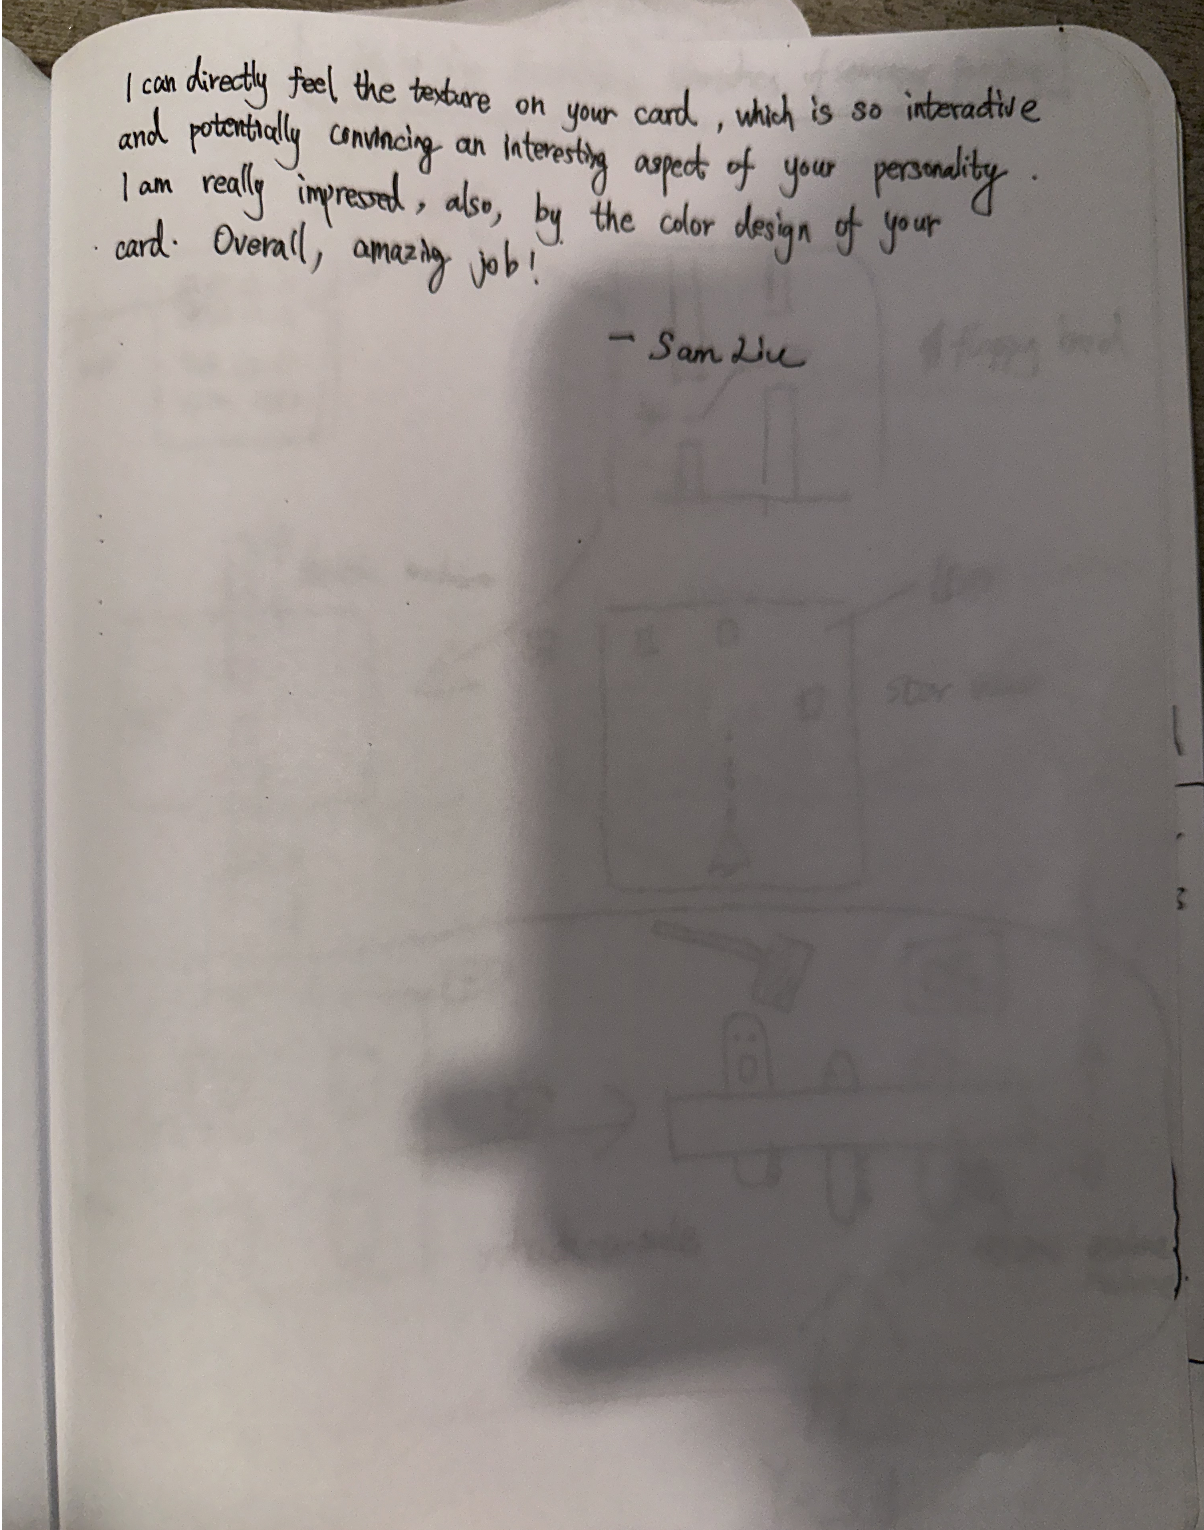 I can directly feel the texture on your card, which is so interactive
and potentially convincing an interesting aspect of your personality.
I am really impressed, also, by the color design of your
card. Overall, amazing job!
- Sam Liu